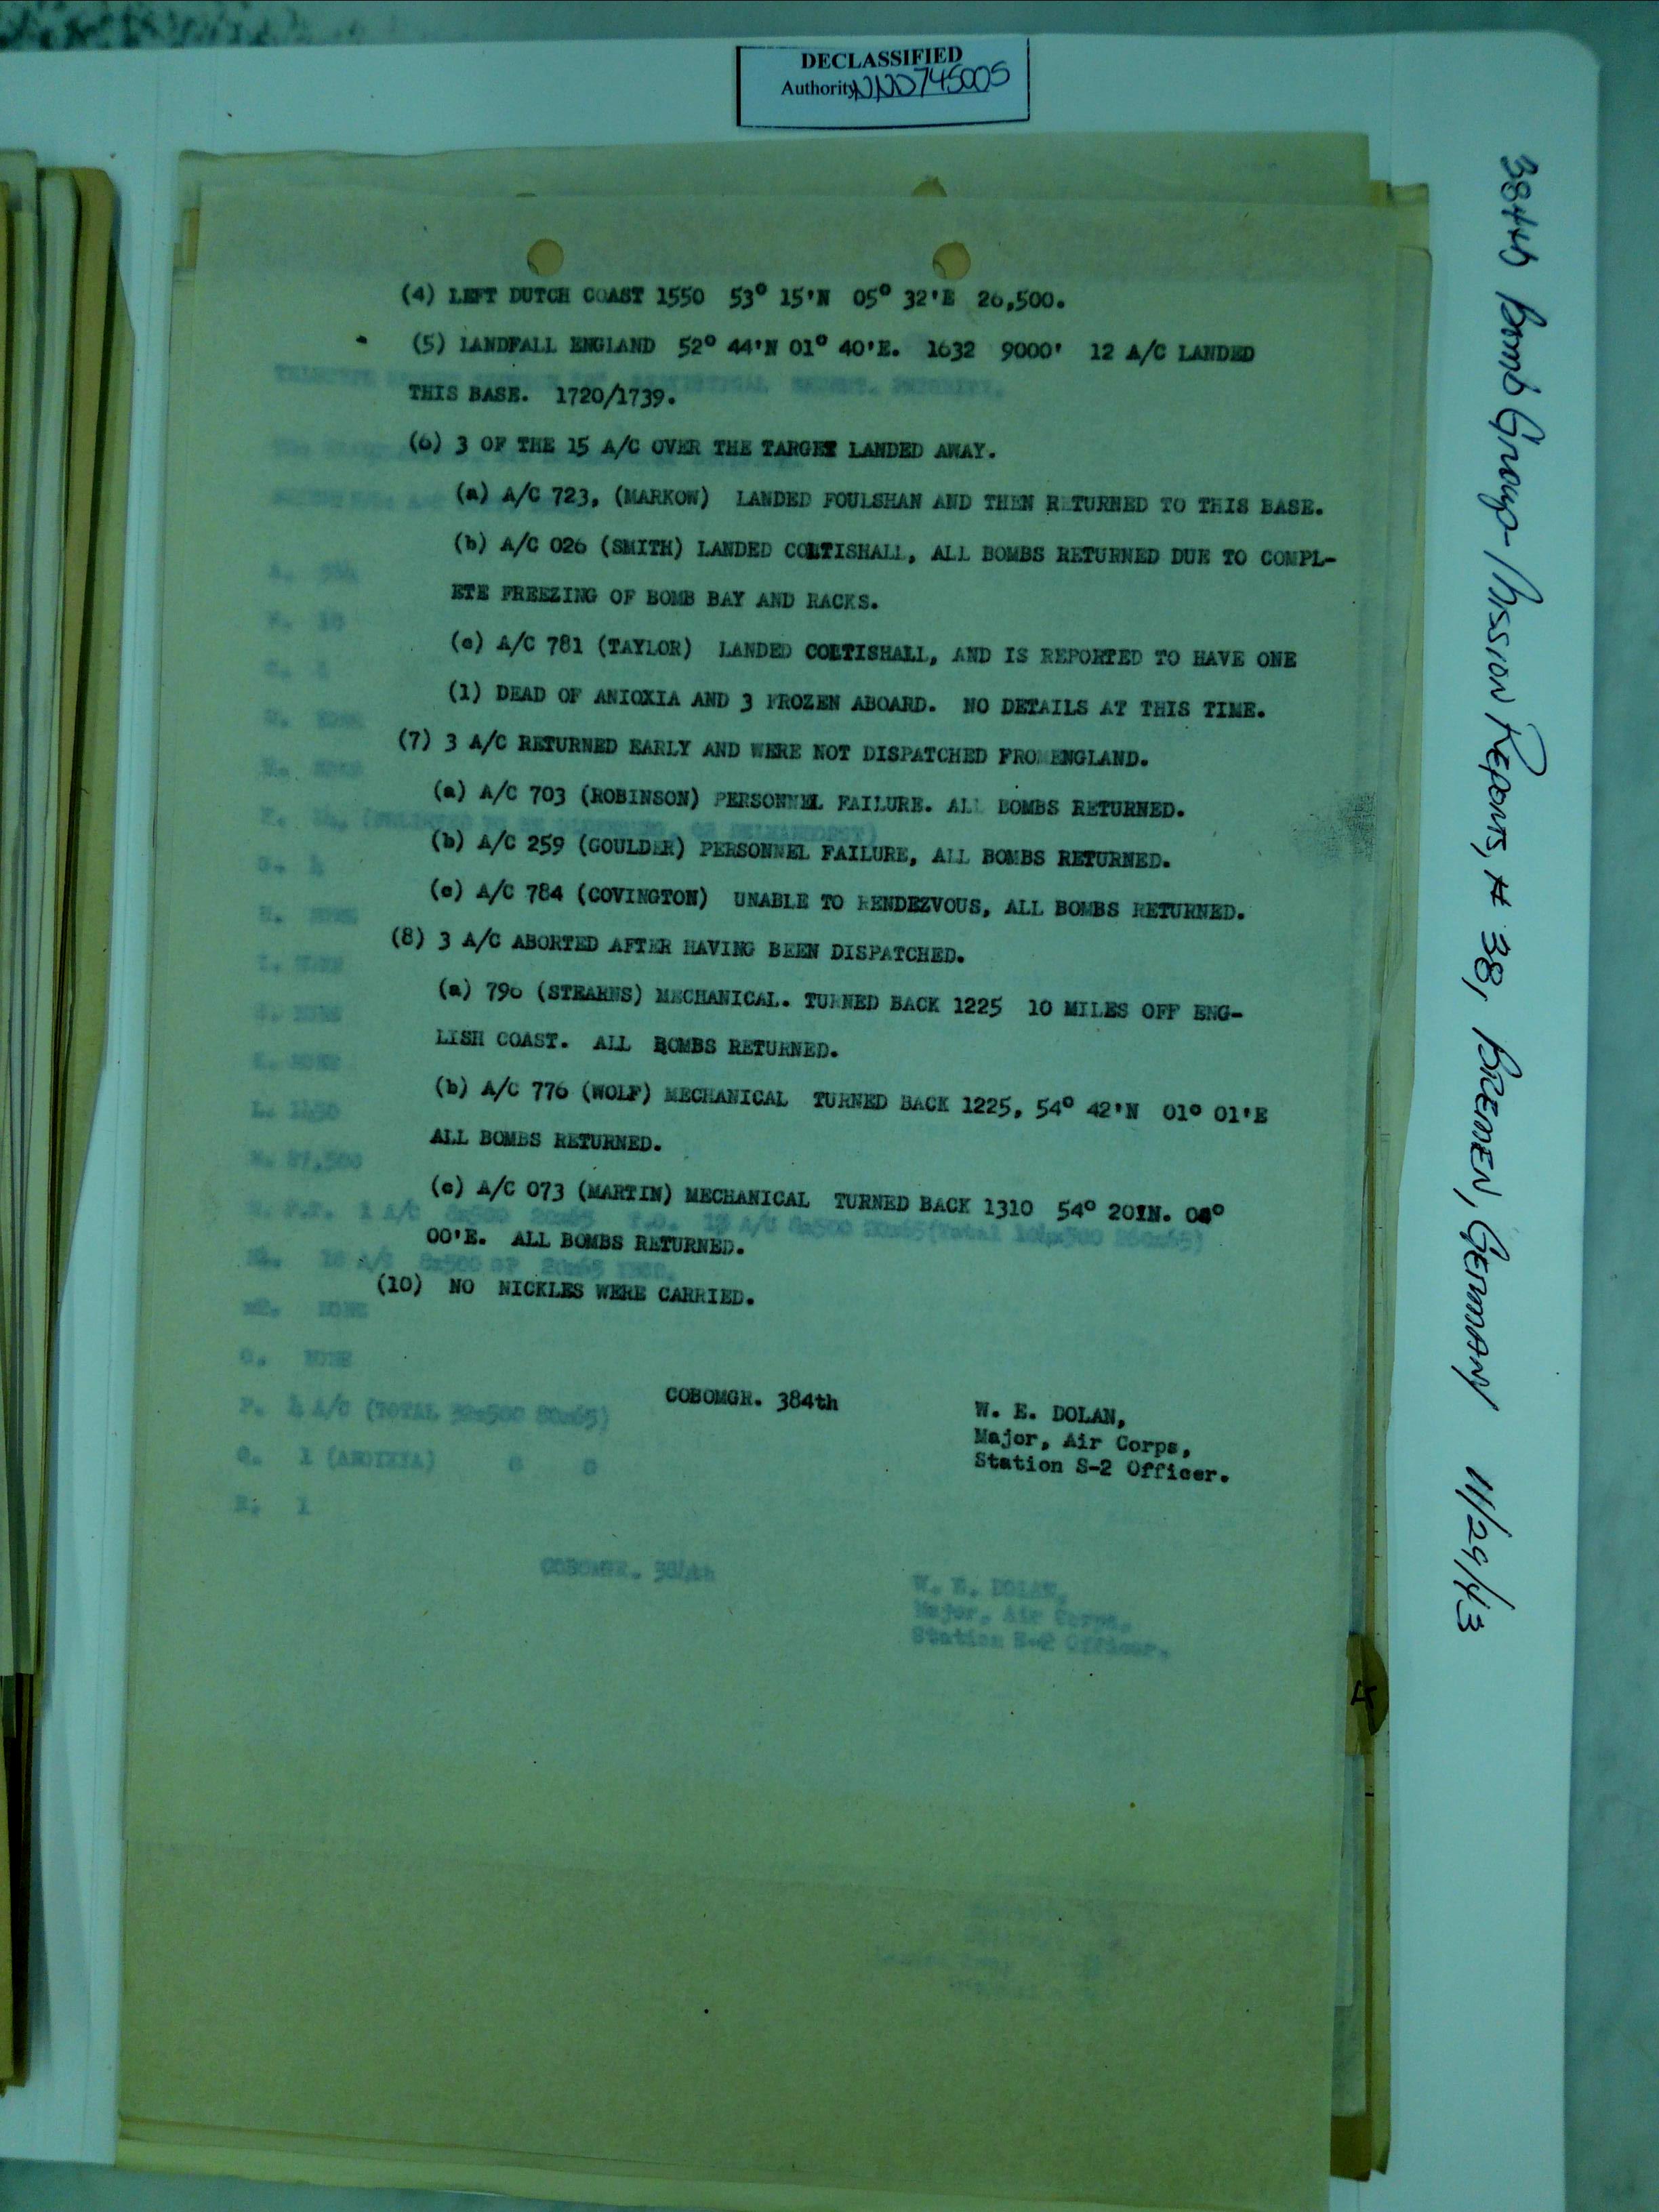 DECLASSIFIED
Authority NND745005
(4) LEFT DUTCH COAST 1550 53° 15'N 05° 32'E 26,500.
(5) LANDFALL ENGLAND 52° 44'N 01° 40'E. 1632 9000' 12 A/C LANDED
THIS BASE. 1720/1739.
(6) 3 OF THE 15 A/C OVER THE TARGET LANDED AWAY.
(a) A/C 723, (MARKOW) LANDED FOULSHAN AND THEN RETURNED TO THIS BASE.
(b) A/C 026 (SMITH) LANDED COLTISHALL, ALL BOMBS RETURNED DUE TO COMPL-
ETE FREEZING OF BOMB BAY AND RACKS.
(c) A/C 781 (TAYLOR) LANDED COLTISHALL, AND IS REPORTED TO HAVE ONE
(1) DEAD OF ANIOXIA AND 3 FROZEN ABOARD. NO DETAILS AT THIS TIME.
(7) 3 A/C RETURNED EARLY AND WERE NOT DISPATCHED FROM ENGLAND.
(a) A/C 703 (ROBINSON) PERSONNEL FAILURE. ALL BOMBS RETURNED.
(b) A/C 259 (GOULDER) PERSONNEL FAILURE, ALL BOMBS RETURNED.
(c) A/C 784 (COVINGTON) UNABLE TO RENDEZVOUS, ALL BOMBS RETURNED.
(8) 3 A/C ABORTED AFTER HAVING BEEN DISPATCHED.
(a) 796 (STEARNS) MECHANICAL. TURNED BACK 1225 10 MILES OFF ENG-
LISH COAST. ALL BOMBS RETURNED.
(b) A/C 776 (WOLF) MECHANICAL TURNED BACK 1225, 54° 42'N 01° 01'E
ALL BOMBS RETURNED.
(c) A/C 073 (MARTIN) MECHANICAL TURNED BACK 1310 54° 20'N.
00'E. ALL BOMBS RETURNED.
(10) NO NICKLES WERE CARRIED.
COBOMGR. 384th
W. E. DOLAN,
Major, Air Corps,
Station S-2 Officer.
P. 4 A/C (TOTAL 32x500 80x65)
Q. 1 (ANOIXIA)
R. 1
COBOMGR. 384th
W. E. DOLAN,
Major, Air Corps,
Station S-2 Officer.
384th Bomb Group - Mission Reports, # 38, BREMEN, GERMANY 11/29/43